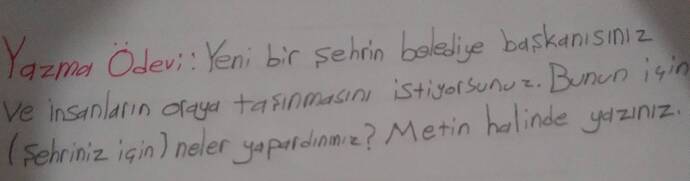 Yazma Ödevi: Yeni bir şehrin belediye başkanısınız
ve insanların oraya taşınmasını istiyorsunuz. Bunun için
(şehriniz için) neler yapardınız? Metin halinde yazınız.